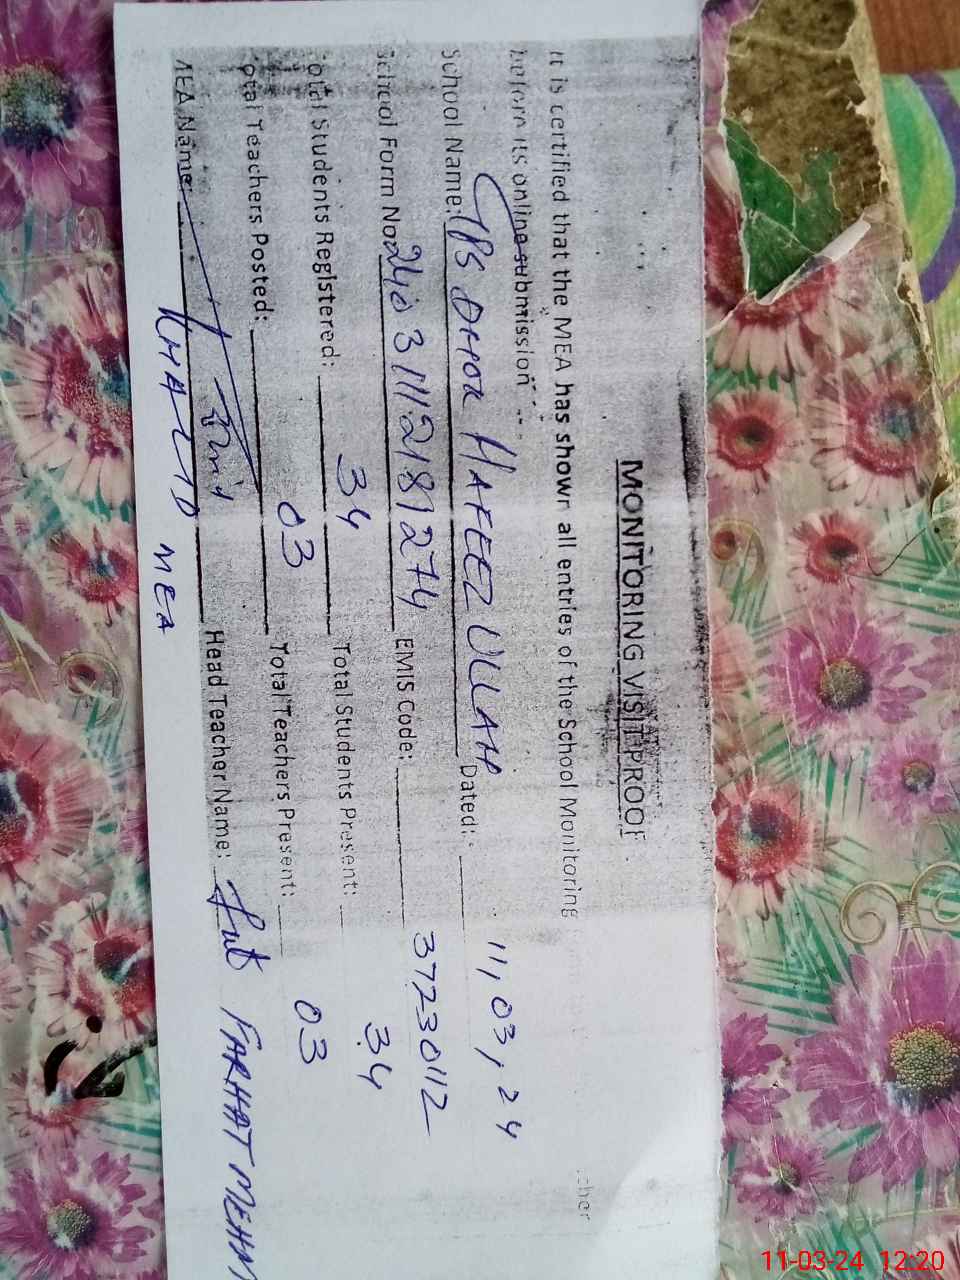 MONITORING VISIT PROOF
It is certified that the MEA has shown all entries of the School Monitoring
cher
before its online submission
School Name: GPS HAFEEZ ULLAH Dated: 11,03,24
School Form No: EMIS Code: 37230112
Total Students Registered: 34 Total Students Present: 34
Total Teachers Posted: 03 Total Teachers Present: 03
MEA Name: Head Teacher Name: FARHAT
KHALID MEA
11-03-24 12:20